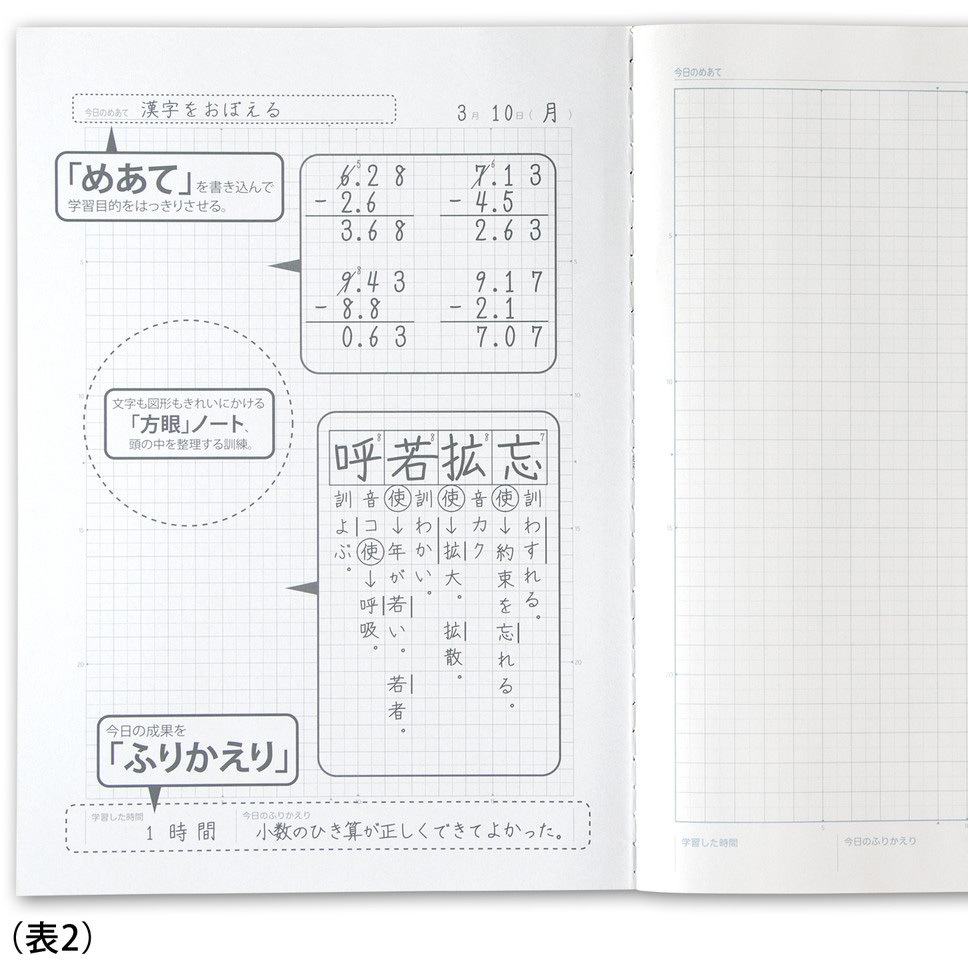 今日のめあて 漢字をおぼえる
3月 10日(月)
「めあて」を書き込んで
学習目的をはっきりさせる。
5
6.28
- 2.6
3.68
6
7.13
- 4.5
2.63
8
9.43
- 8.8
0.63
9.17
- 2.1
7.07
文字も図形もきれいにかける
「方眼」ノート、
頭の中を整理する訓練。
忘 7
訓わすれる。
使→約束を忘れる。
拡 8
音カク
使→拡大。拡散。
若 8
訓わかい。
使→年が若い。若者。
呼 8
音コ使→呼吸。
訓よぶ。
今日の成果を
「ふりかえり」
学習した時間 1時間
今日のふりかえり 小数のひき算が正しくできてよかった。
5
10
15
20
5
10
15
20
今日のめあて
5
10
15
20
5
学習した時間
今日のふりかえり
(表2)